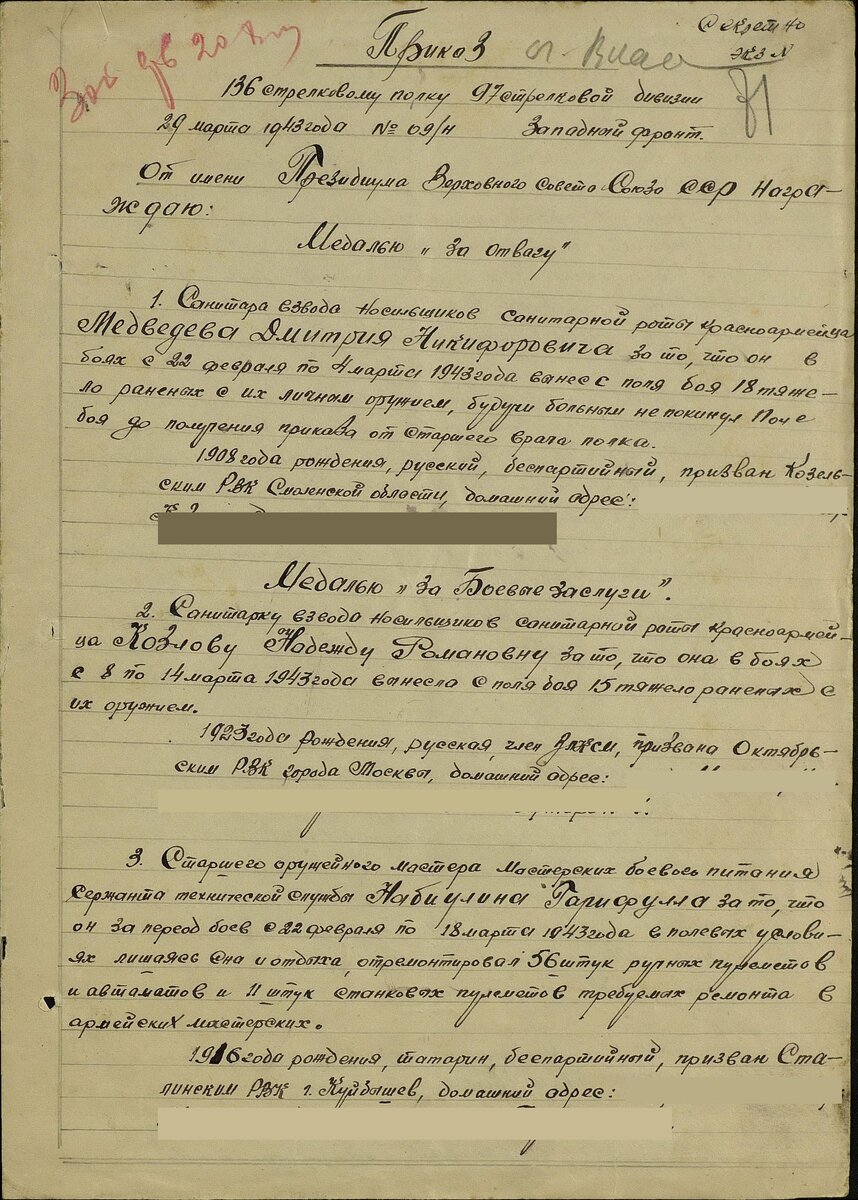 Секретно
Экз N
Приказ
71
136 стрелковому полку 97 стрелковой дивизии
29 марта 1943 года № 09/н Западный фронт.
От имени Президиума Верховного Совета Союза ССР Награ-
ждаю:
Медалью „За отвагу"
1. Санитара взвода Носильщиков санитарной роты красноармейца
Медведева Дмитрия Никифоровича за то, что он в
боях с 22 февраля по 4 марта 1943 года вынес с поля боя 18 тяже-
ло раненых с их личным оружием, будучи больным не покинул Поле
боя до получения приказа от Старшего врача полка.
1908 года рождения, русский, беспартийный, призван Козель-
ским РВК Смоленской области, домашний адрес:
Медалью „За Боевые заслуги".
2. Санитарку взвода Носильщиков санитарной роты красноармей-
ца Козлову Надежду Романовну за то, что она в боях
с 8 по 14 марта 1943 года вынесла с поля боя 15 тяжело раненых с
их оружием.
1923 года рождения, русская, член ВЛКСМ, призвана Октябрь-
ским РВК города Москвы, домашний адрес:
3. Старшего оружейного мастера Мастерских боевого питания
Сержанта технической Службы Набиулина Гарифулла за то, что
он за переод боев с 22 февраля по 18 марта 1943 года в полевых услови-
ях лишаясь Сна и отдыха, отремонтировал 56 штук ручных пулеметов
и автаматов и 11 штук станковых пулеметов требуемых ремонта в
армейских мастерских.
1916 года рождения, татарин, беспартийный, призван Ста-
линским РВК г. Куйбышев, домашний адрес: